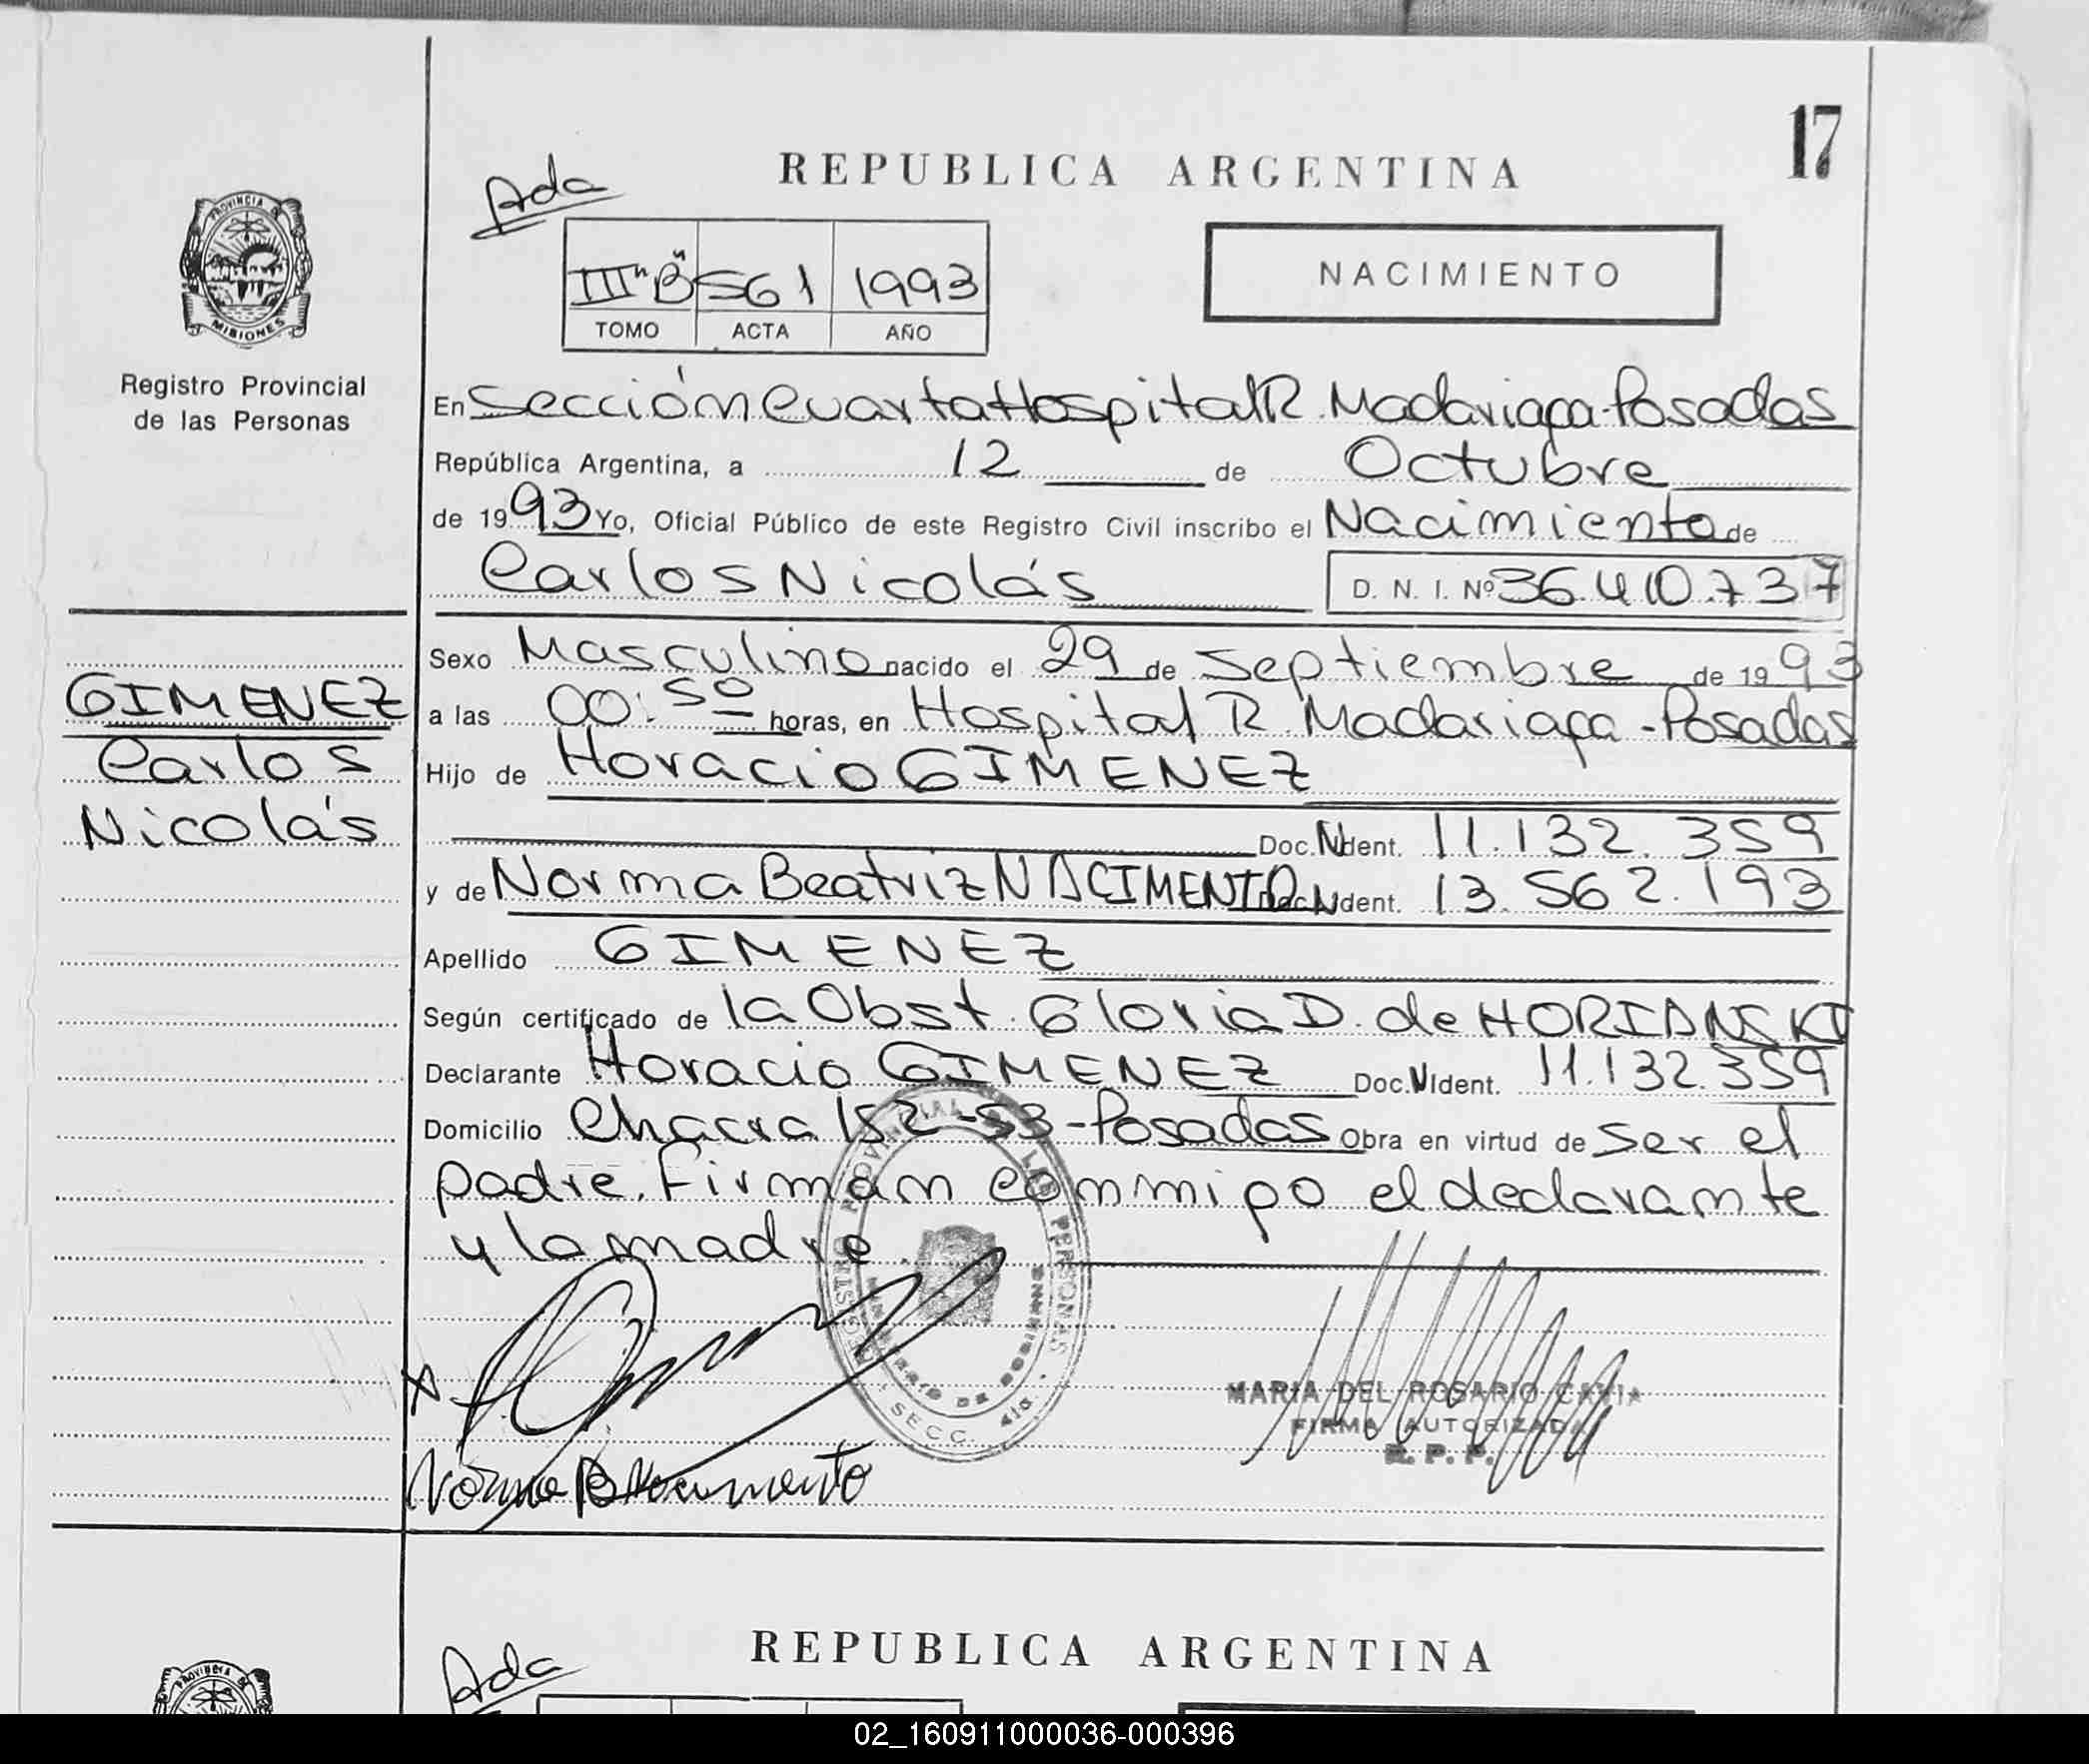 17
REPUBLICA ARGENTINA
Ada
PROVINCIA DE
MISIONES
Registro Provincial
de las Personas
III "B" 561 1993
TOMO ACTA AÑO
NACIMIENTO
En Sección Cuarta Hospital R. Madariaga-Posadas
República Argentina, a 12 de Octubre
de 1993 Yo, Oficial Público de este Registro Civil inscribo el Nacimiento de
Carlos Nicolás D. N. I. Nº 36.410.737
GIMENEZ
Carlos
Nicolás
Sexo Masculino nacido el 29 de Septiembre de 1993
a las 00:50 horas, en Hospital R. Madariaga-Posadas
Hijo de Horacio GIMENEZ
Doc. N Ident. 11.132.359
y de Norma Beatriz NACIMENTO Doc. N Ident. 13.562.193
Apellido GIMENEZ
Según certificado de la Obst. Gloria D. de HORIANSKI
Declarante Horacio GIMENEZ Doc. N Ident. 11.132.359
Domicilio Chacra 152-53-Posadas Obra en virtud de ser el
padre. Firman conmigo el declarante
y la madre.
REGISTRO PROVINCIAL DE LAS PERSONAS
MINISTERIO DE GOBIERNO
SECC. 4ta.
X
Norma B Nacimento
MARIA DEL ROSARIO
FIRMA AUTORIZADA
R. P. P.
REPUBLICA ARGENTINA
Ada
PROVINCIA DE
02_160911000036-000396